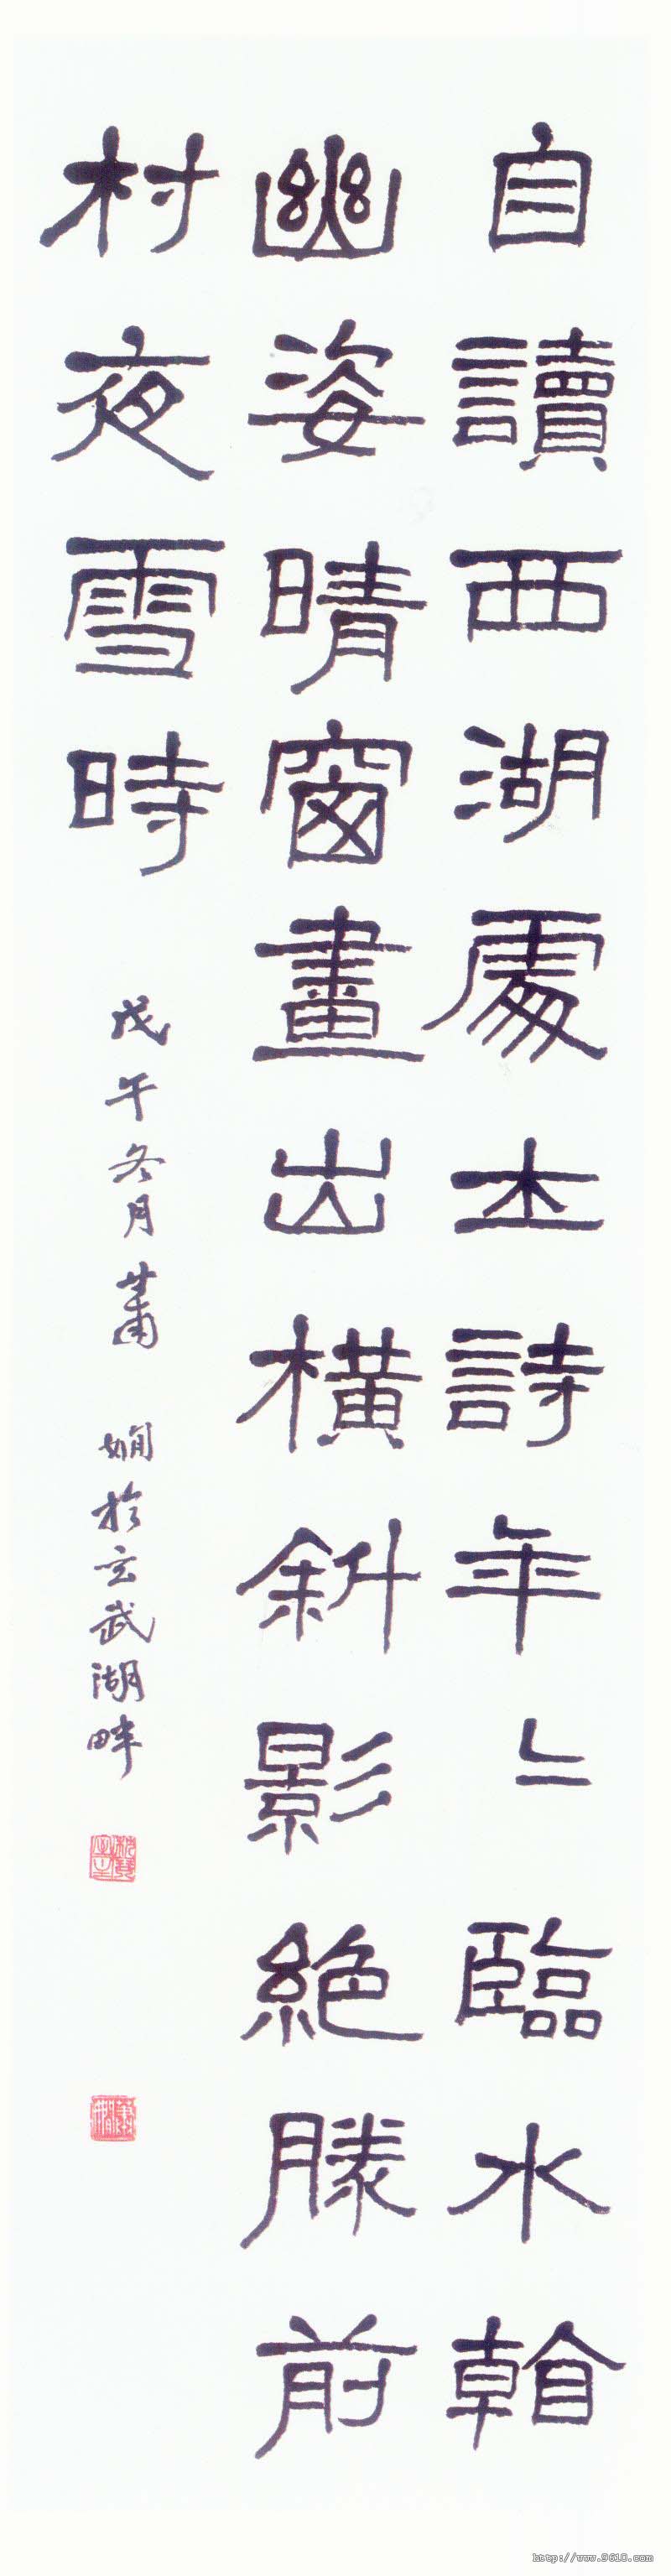 自讀西湖處士詩年々臨水看
幽姿晴窗畫出橫斜影絕勝前
村夜雪時
戊午冬月蕭嫻於玄武湖畔
枕琴室
蕭嫻
http://www.9610.com